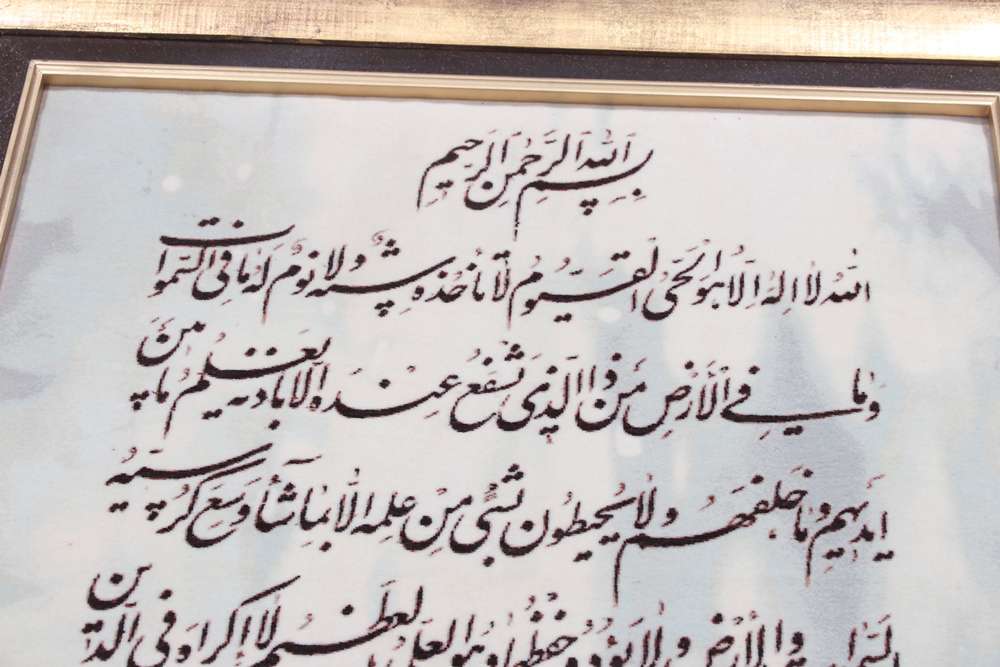 بِسْمِ اللهِ الرَّحْمنِ الرَحِيمِ
اللهُ لا اِلهَ اِلاّ هُوَ الْحَیُّ الْقَیُّومُ لا تَأخُذُهُ سِنَه وَلا نَوْمٌ لَهُ ما فِی السَّموات
وَما فِی الْأَرْضِ مَنْ ذَا الَّذی یَشْفَعُ عِنْدَهُ الاّ باذنه یَعْلَمُ ما بَینَ
ایدیهِم وَما خَلفَهُم وَلا یُحیطُونَ بشَیْءٍ مِنْ عِلمِه الاّ بِما شآءَ وَسِعَ کُرسِیُّه
السَّموات وَالْأَرْضَ وَلا یَؤُدُهُ حِفْظُهُما وَهُوَ العَلیُّ العَظیم لا اِکراهَ فِی الدّین